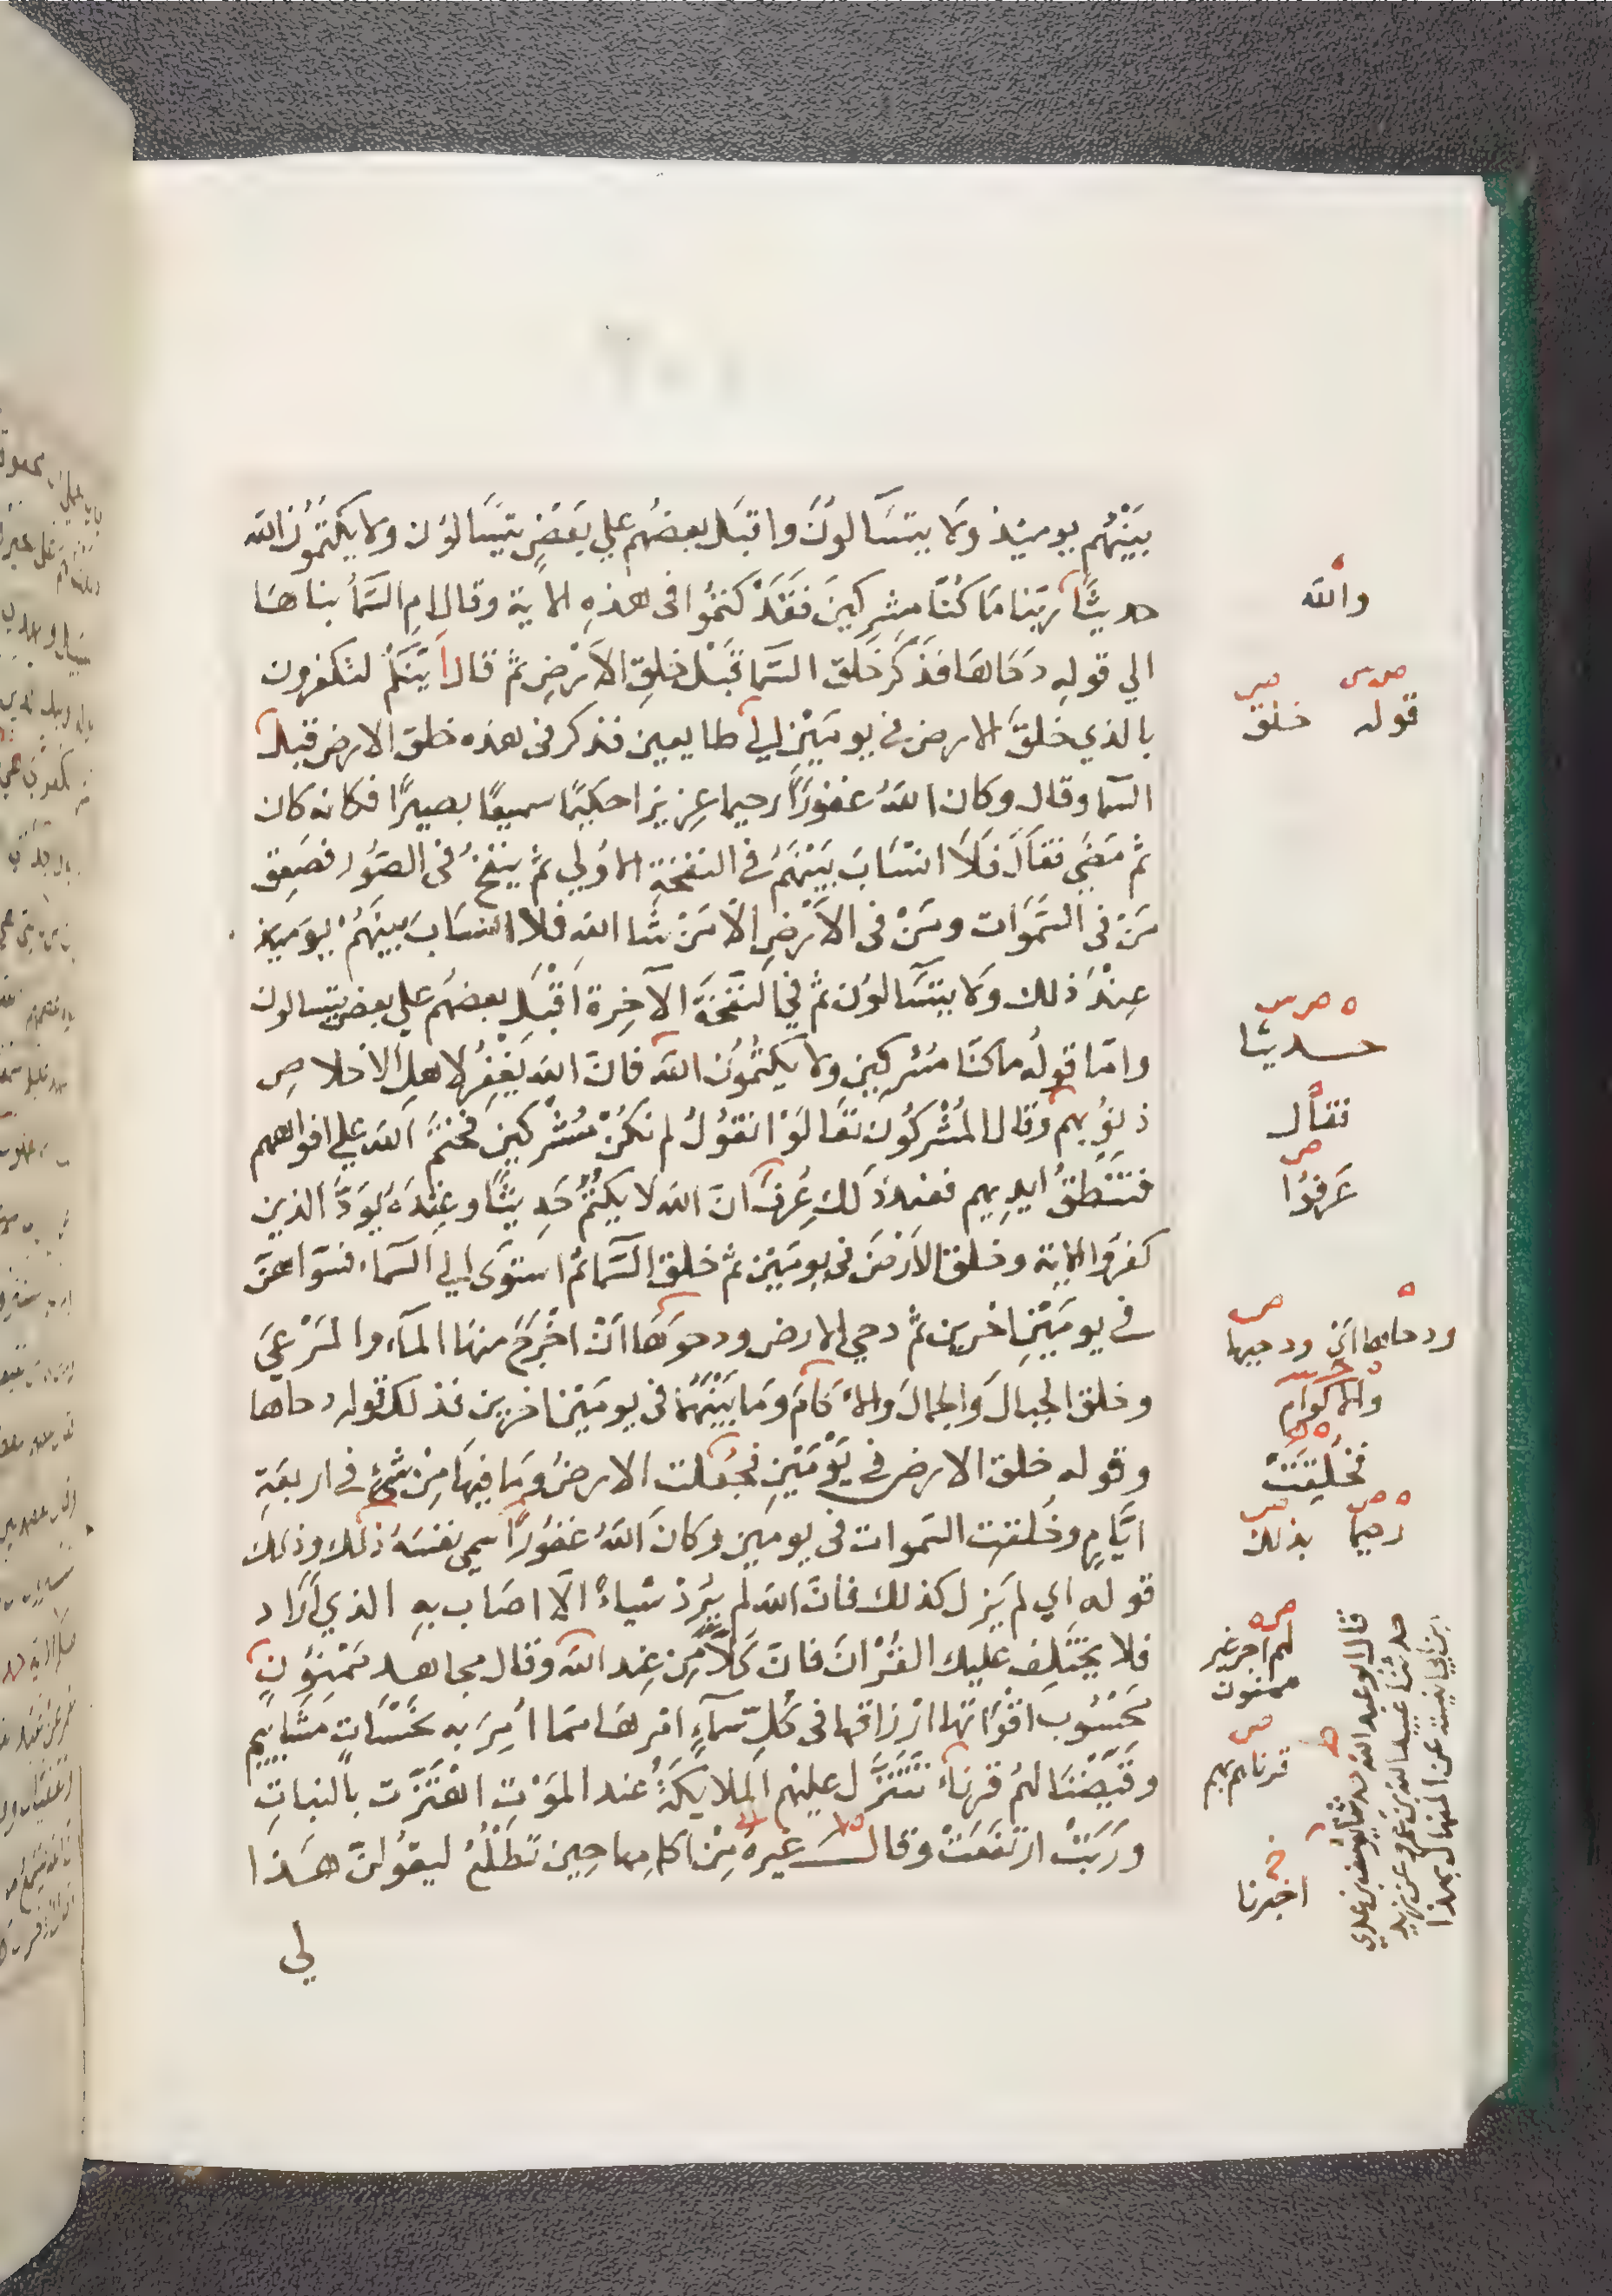 بَيْنَهُم يوميذ وَلا يتسَآلونَ واقبَل بعضهُم علي بَعْضٍ يتَسَالوُن ولا يكتمُونَ الله
حديثًا رَبّنا مَا كُنّا مشركينَ فَقَدْ كتمُوا فى هذهِ الاية وقال امِ السّمَأُ بناهَا
الي قوله دَحَاهَا فذَكَر خَلقَ السّمَا قَبْل خلقِ الاَرْضِ ثمّ قال أَيِنّكُمْ لتكفرون
بالذي خلقَ الارض في يومَيْنِ الي طايعين فذكر فى هذه خلقَ الارض قبل
السّما وقال وكان اللهُ غفورًا رحيما عزيزا حكيمًا سميعًا بصيرًا فكانه كان
ثم مَضَى فقالَ فَلَا انسَابَ بَيْنَهُمْ في النفخةِ الاوُلي ثمّ ينفخُ فى الصّوُر فصَعِق
مَنْ فى السّمَوَات ومَنْ فى الأَرْضِ الّا مَنْ شا الله فلا انسَابَ بينَهُمْ يَومَيذ
عِنْدَ ذلك وَلا يتَسَآلوُن ثمّ في النّفخَةِ الآخِرة اَقْبَلَ بعضهُم علي بعضٍ يتسالون
وامّا قولُه ما كنّا مُشركينِ ولا يَكتُمُونَ اللهَ فانّ الله يَغْفِرُ لاهل الاخلاصِ
ذنُوبهم وقال المُشْركُون تعَالَوْا نقوُلُ لم نكُنْ مُشْركينَ فختَمَ الله علي افواههم
فتَنطِقُ ايديهم فعندَ ذَلك عُرِفَ انّ الله لا يكتَمُ حَديثًا وعِندَهُ يَودَّ الذين
كفَروا الاية وخلقَ الارْضَ فى يومَيْن ثمّ خلقَ السّمَا ثم استَوَى الي السّماء فسَوّاهنّ
في يومَيْنِ اخرين ثمّ دحي الارض ودحوُهَا انْ اخرَجَ منهَا المآء والمَرْعَي
وخلق الجبالَ والجمالَ والاكَامَ ومَا بَيْنَهُمَا فى يومَيْن اخرين فذلك قوله دحاها
وقوله خلق الارض في يَوْمَيْنِ فجُعلت الارضُ ومَا فيهَا مِنْ شئٍ في اربعَةِ
ايّامٍ وخُلقَت السّموات فى يومَين وكانَ اللهُ غفورًا سمى نفسَهُ ذلك وذلك
قوله اي لم يَزل كذلك فانّ الله لم يُرِدْ شيأً الّا اصَاب بهِ الذي اَرَاد
فلا يختَلِف عليك القُرْانَ فانّ كلًّا مِن عِند الله وقال مجاهد مَمنُونٍ
مَحسُوبٍ اقوَاتهَا ارْزاقها فى كُلّ سَمآءٍ امرهَا ممّا اُمِرَ به نحسَاتٍ مشايِيم
وقَيّضْنَا لهُم قرنآءَ تَتَنَزّل عليْهم الملايكَةُ عند الموَتِ اهْتَزّت بالنباتِ
ورَبَتْ ارتفَعَتْ وقال غيره مِنْ اكمامِها حين تَطْلُعُ ليقوُلنّ هَذا
لي
والله
صس ص
قوله خلق
ه ص س
حديثا
فقال
ص
عَرفوُا
ص
ودحاها ان ودحيها
والاكوام
فخُلِقَتْ
رحيما بذلك
لهم اجر غير
ممنون
ص
قرناهم بهم
اخبرنا
قال ابو عبد الله حدثنا يوسف بن عدي
حدثنا عبيد الله بن عمرو عن زيد
بن ابي انيسة عن المنهال بهذا